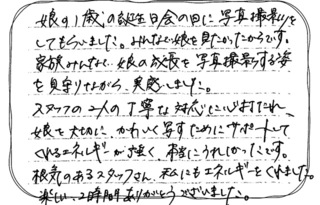 娘の1歳の誕生日会の日に写真撮影を
してもらいました。みんなで娘を見たかったからです。
家族みんなで、娘の成長を写真撮影する姿
を見守りながら、実感しました。
スタッフの2人の丁寧な対応に心打たれ、
娘を大切に、かわいく写すためにサポートして
くれるエネルギーが強く、本当にうれしかったです。
根気のあるスタッフさん、私にもエネルギーをくれました。
楽しい、2時間ありがとうございました。